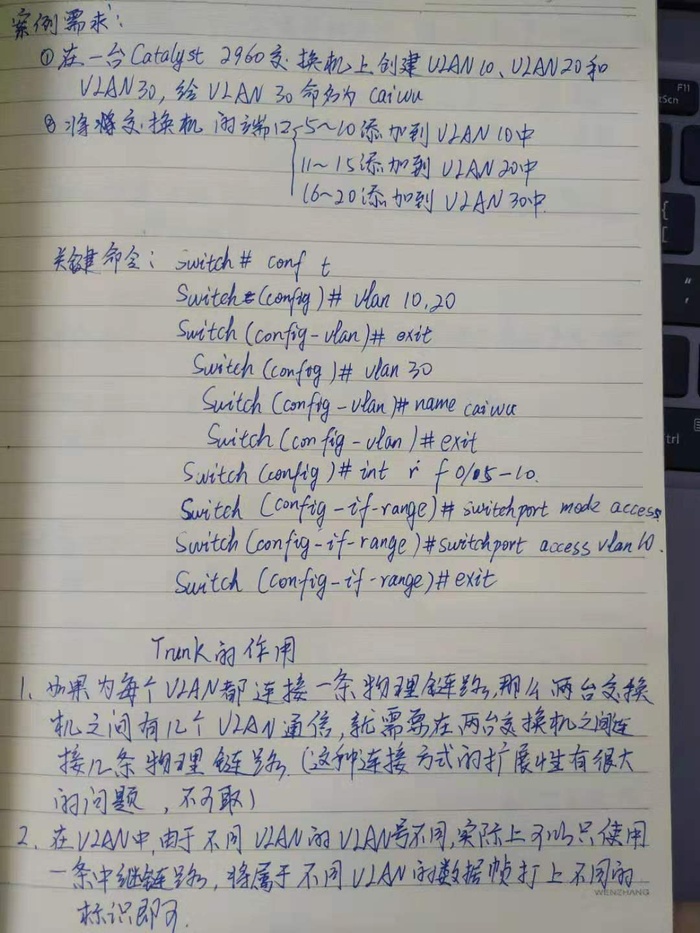 案例需求:
① 在一台Catalyst 2960交换机上创建VLAN 10、VLAN 20和
VLAN 30, 给 VLAN 30 命名为 caiwu
② 将将交换机的端口 5~10添加到 VLAN 10中
11~15添加到 VLAN 20中
16~20添加到 VLAN 30中
关键命令: switch# conf t
Switch(config)# vlan 10,20
Switch(config-vlan)# exit
Switch(config)# vlan 30
Switch(config-vlan)# name caiwu
Switch(config-vlan)# exit
Switch(config)# int r f 0/5-10.
Switch (config-if-range)# switchport mode access
Switch(config-if-range)#switchport access vlan 10.
Switch (config-if-range)# exit
Trunk的作用
1. 如果为每个VLAN都连接一条物理链路,那么两台交换
机之间有几个VLAN通信,就需要在两台交换机之间连
接几条物理链路.(这种连接方式的扩展性有很大
的问题,不可取)
2. 在VLAN中,由于不同VLAN的VLAN号不同,实际上可以只使用
一条中继链路,将属于不同VLAN的数据帧打上不同的
标识即可.
WENZHANG
F11
rtScn
{
[
"
,
trl